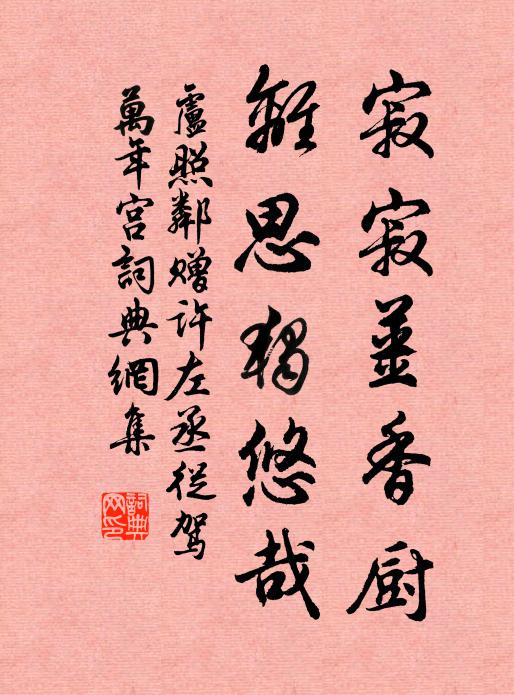 寂寂芸香厨
離思獨悠哉
盧照鄰贈許左丞從駕
萬年宮詞典網集
詞典网印